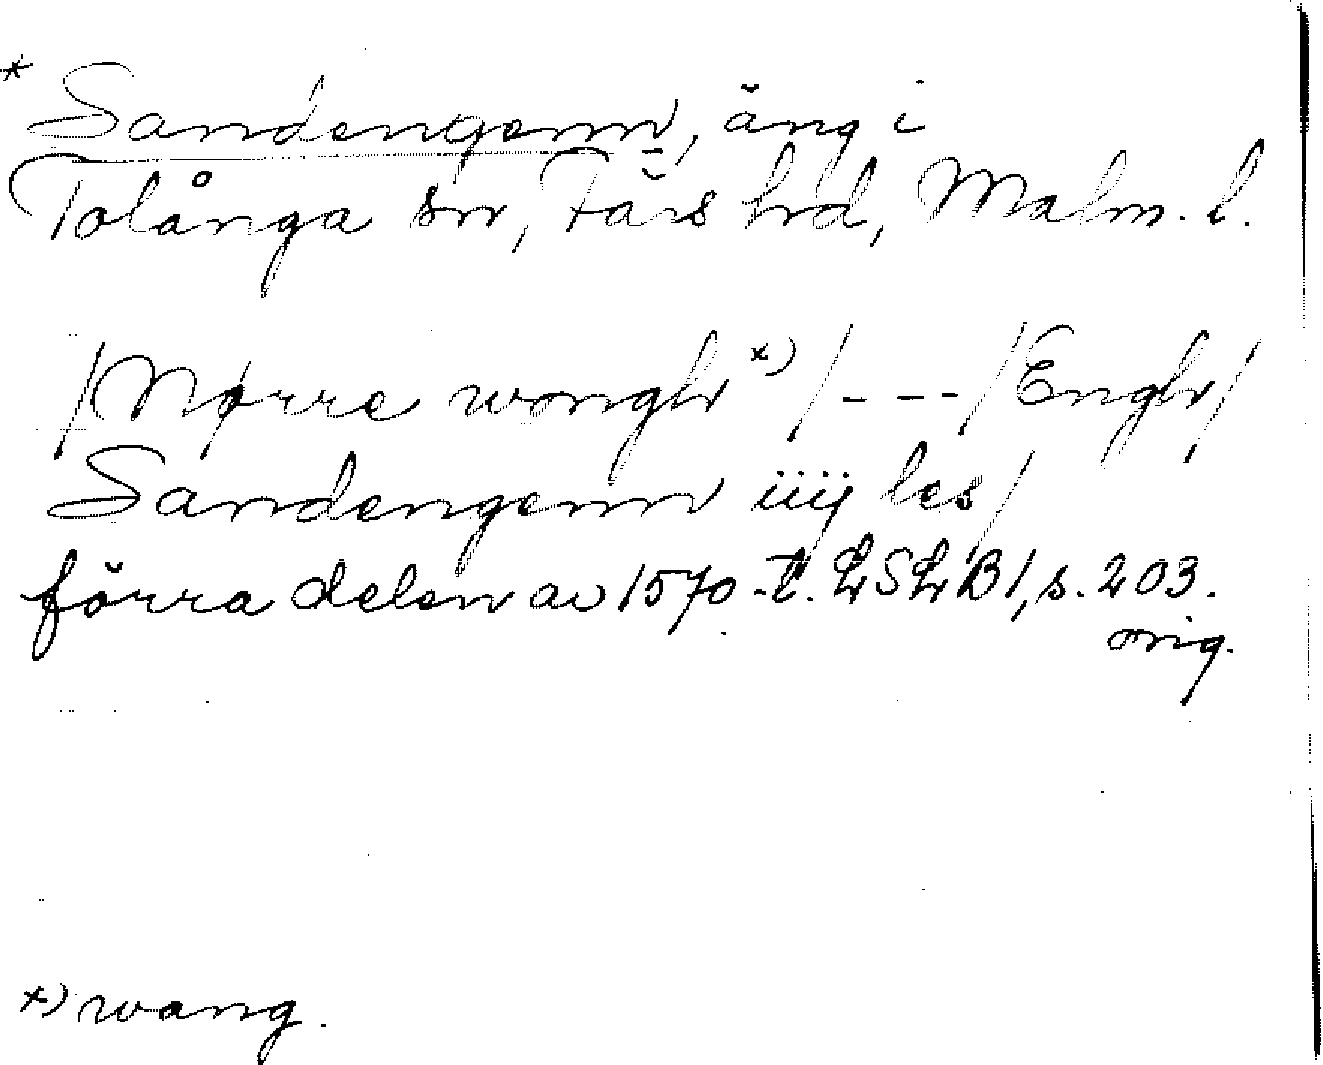 * Sandengenn, äng i
Tolånga sn, Färs hrd, Malm. l.
/Nørre wongh *) / - - - /Engh/
Sandengenn iiij les/
förra delen av 1570-t. LSLB1, s. 203.
orig.
*) wang.